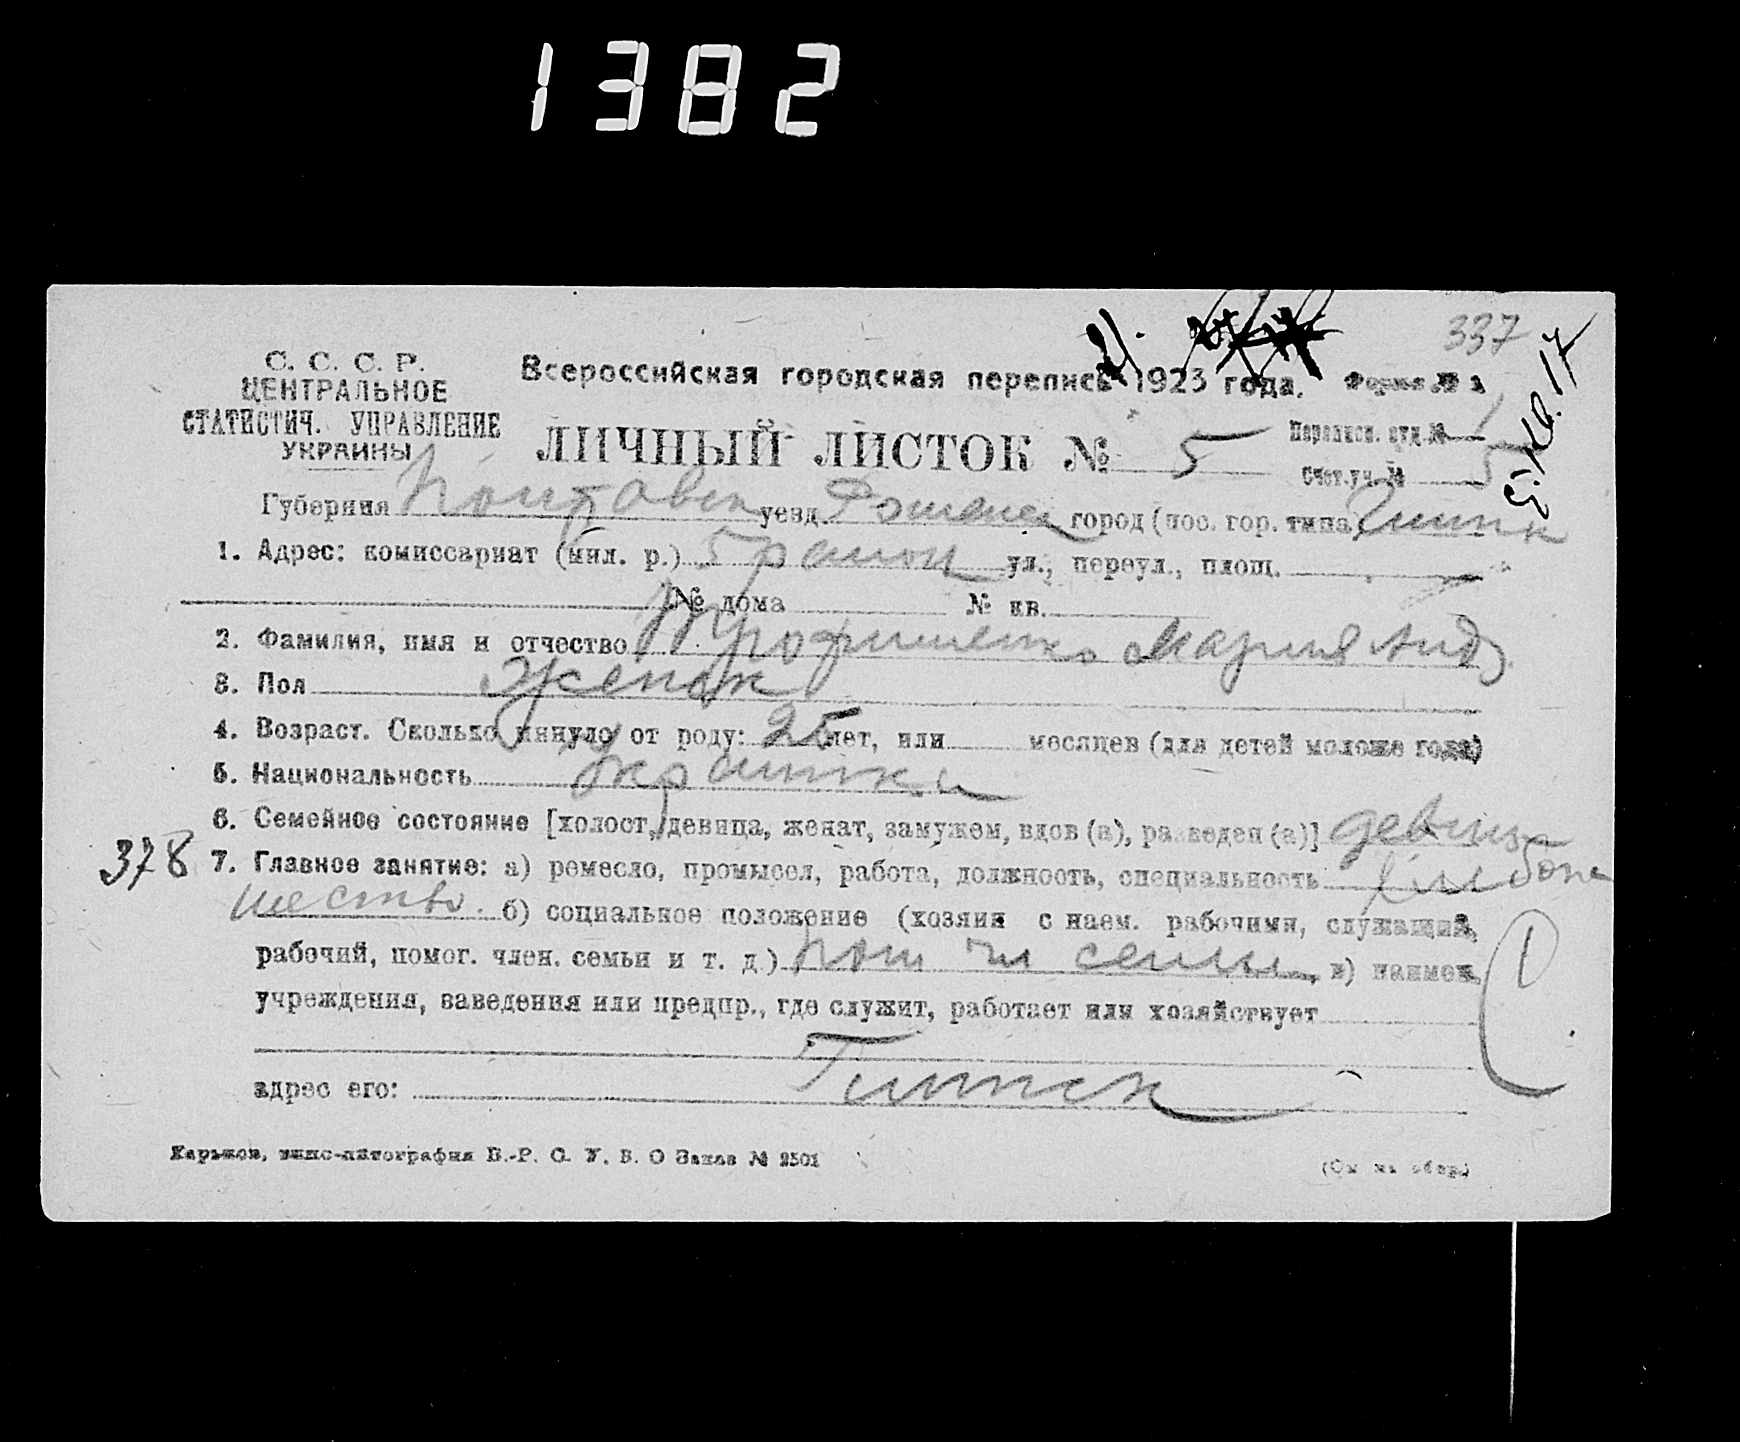 1382
337
С. С. С. Р.
ЦЕНТРАЛЬНОЕ
СТАТИСТИЧ. УПРАВЛЕНИЕ
УКРАИНЫ
Всероссийская городская перепись 1923 года.
Форма № 1
ЛИЧНЫЙ ЛИСТОК № 5
Переписн. отд. № 1
Счет. уч. № 5
Губерния Полтавск уезд Роменск город (пос. гор. типа)
1. Адрес: комиссариат (мил. р.) 5 район ул., переул., площ.
№ дома № кв.
2. Фамилия, имя и отчество Трофименко Мария Андр
3. Пол Женск
4. Возраст. Сколько минуло от роду: 25 лет, или месяцев (для детей моложе года)
5. Национальность Украинка
6. Семейное состояние [холост, девица, женат, замужем, вдов (а), разведен (а)] девица
378
7. Главное занятие: а) ремесло, промысел, работа, должность, специальность хлибопа
шество. б) социальное положение (хозяин с наем. рабочими, служащий,
рабочий, помог. член. семьи и т. д.) пом чл семьи, в) наимен.
1
учреждения, заведения или предпр., где служит, работает или хозяйствует
адрес его: Глинск
Харьков, типо-литография В.-Р. С. У. В. О Заказ № 2501
(См на обор.)